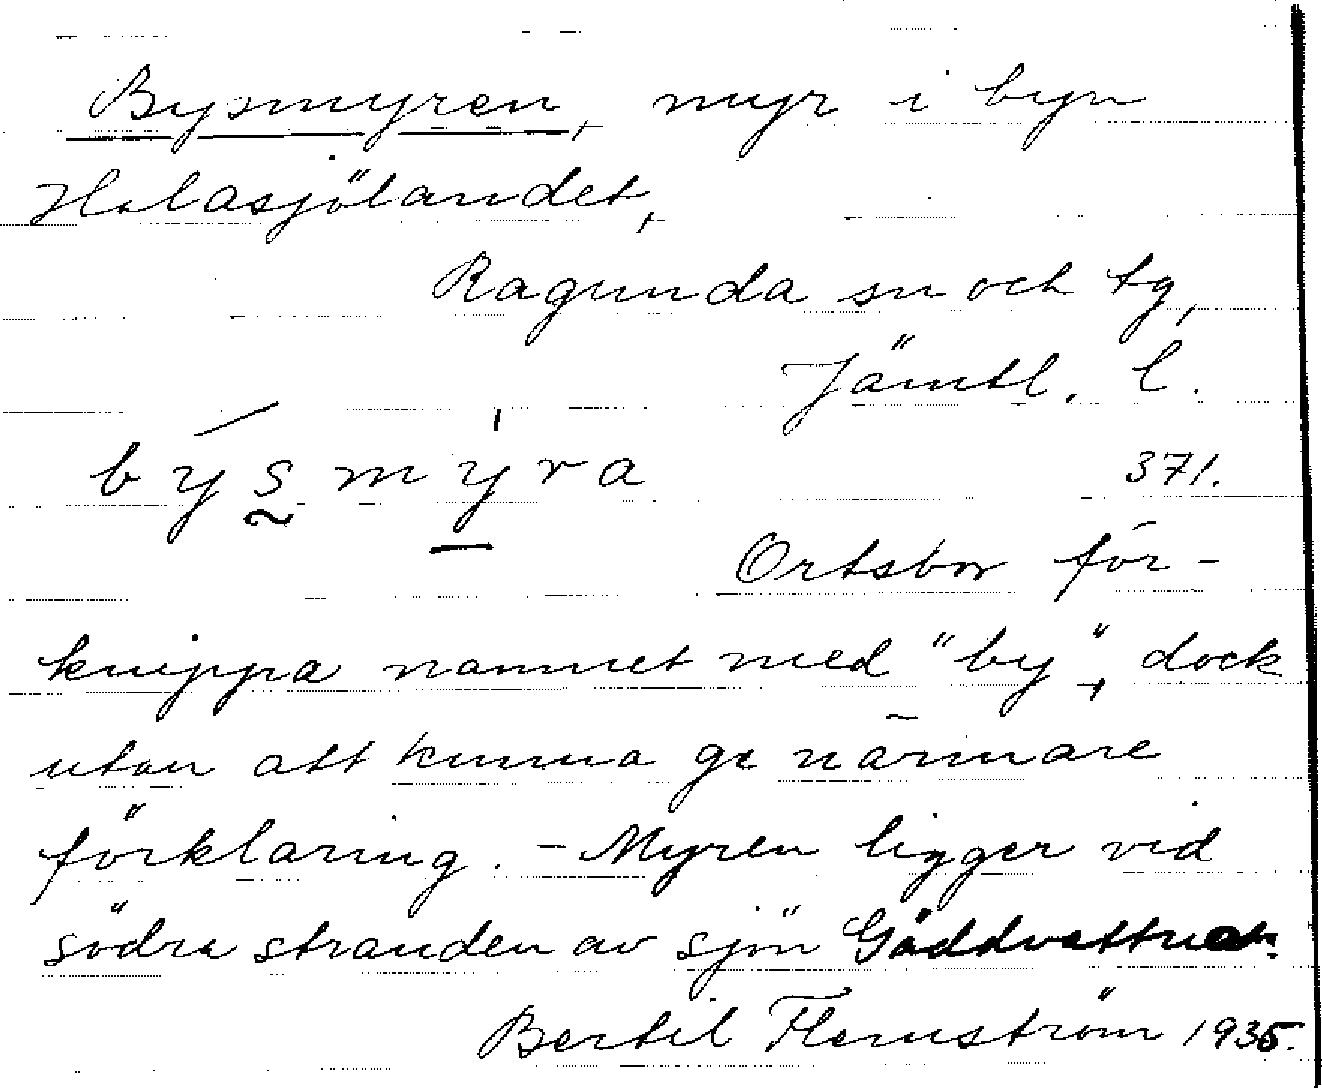 Bysmyren, myr i byn
Halasjölandet,
Ragunda sn och tg,
Jämtl. l.
bysmyra 371.
Ortsbor för-
knippa namnet med "by", dock
utan att kunna ge närmare
förklaring. - Myren ligger vid
södra stranden av sjön Gäddvattnet.
Bertil Flemström 1935.